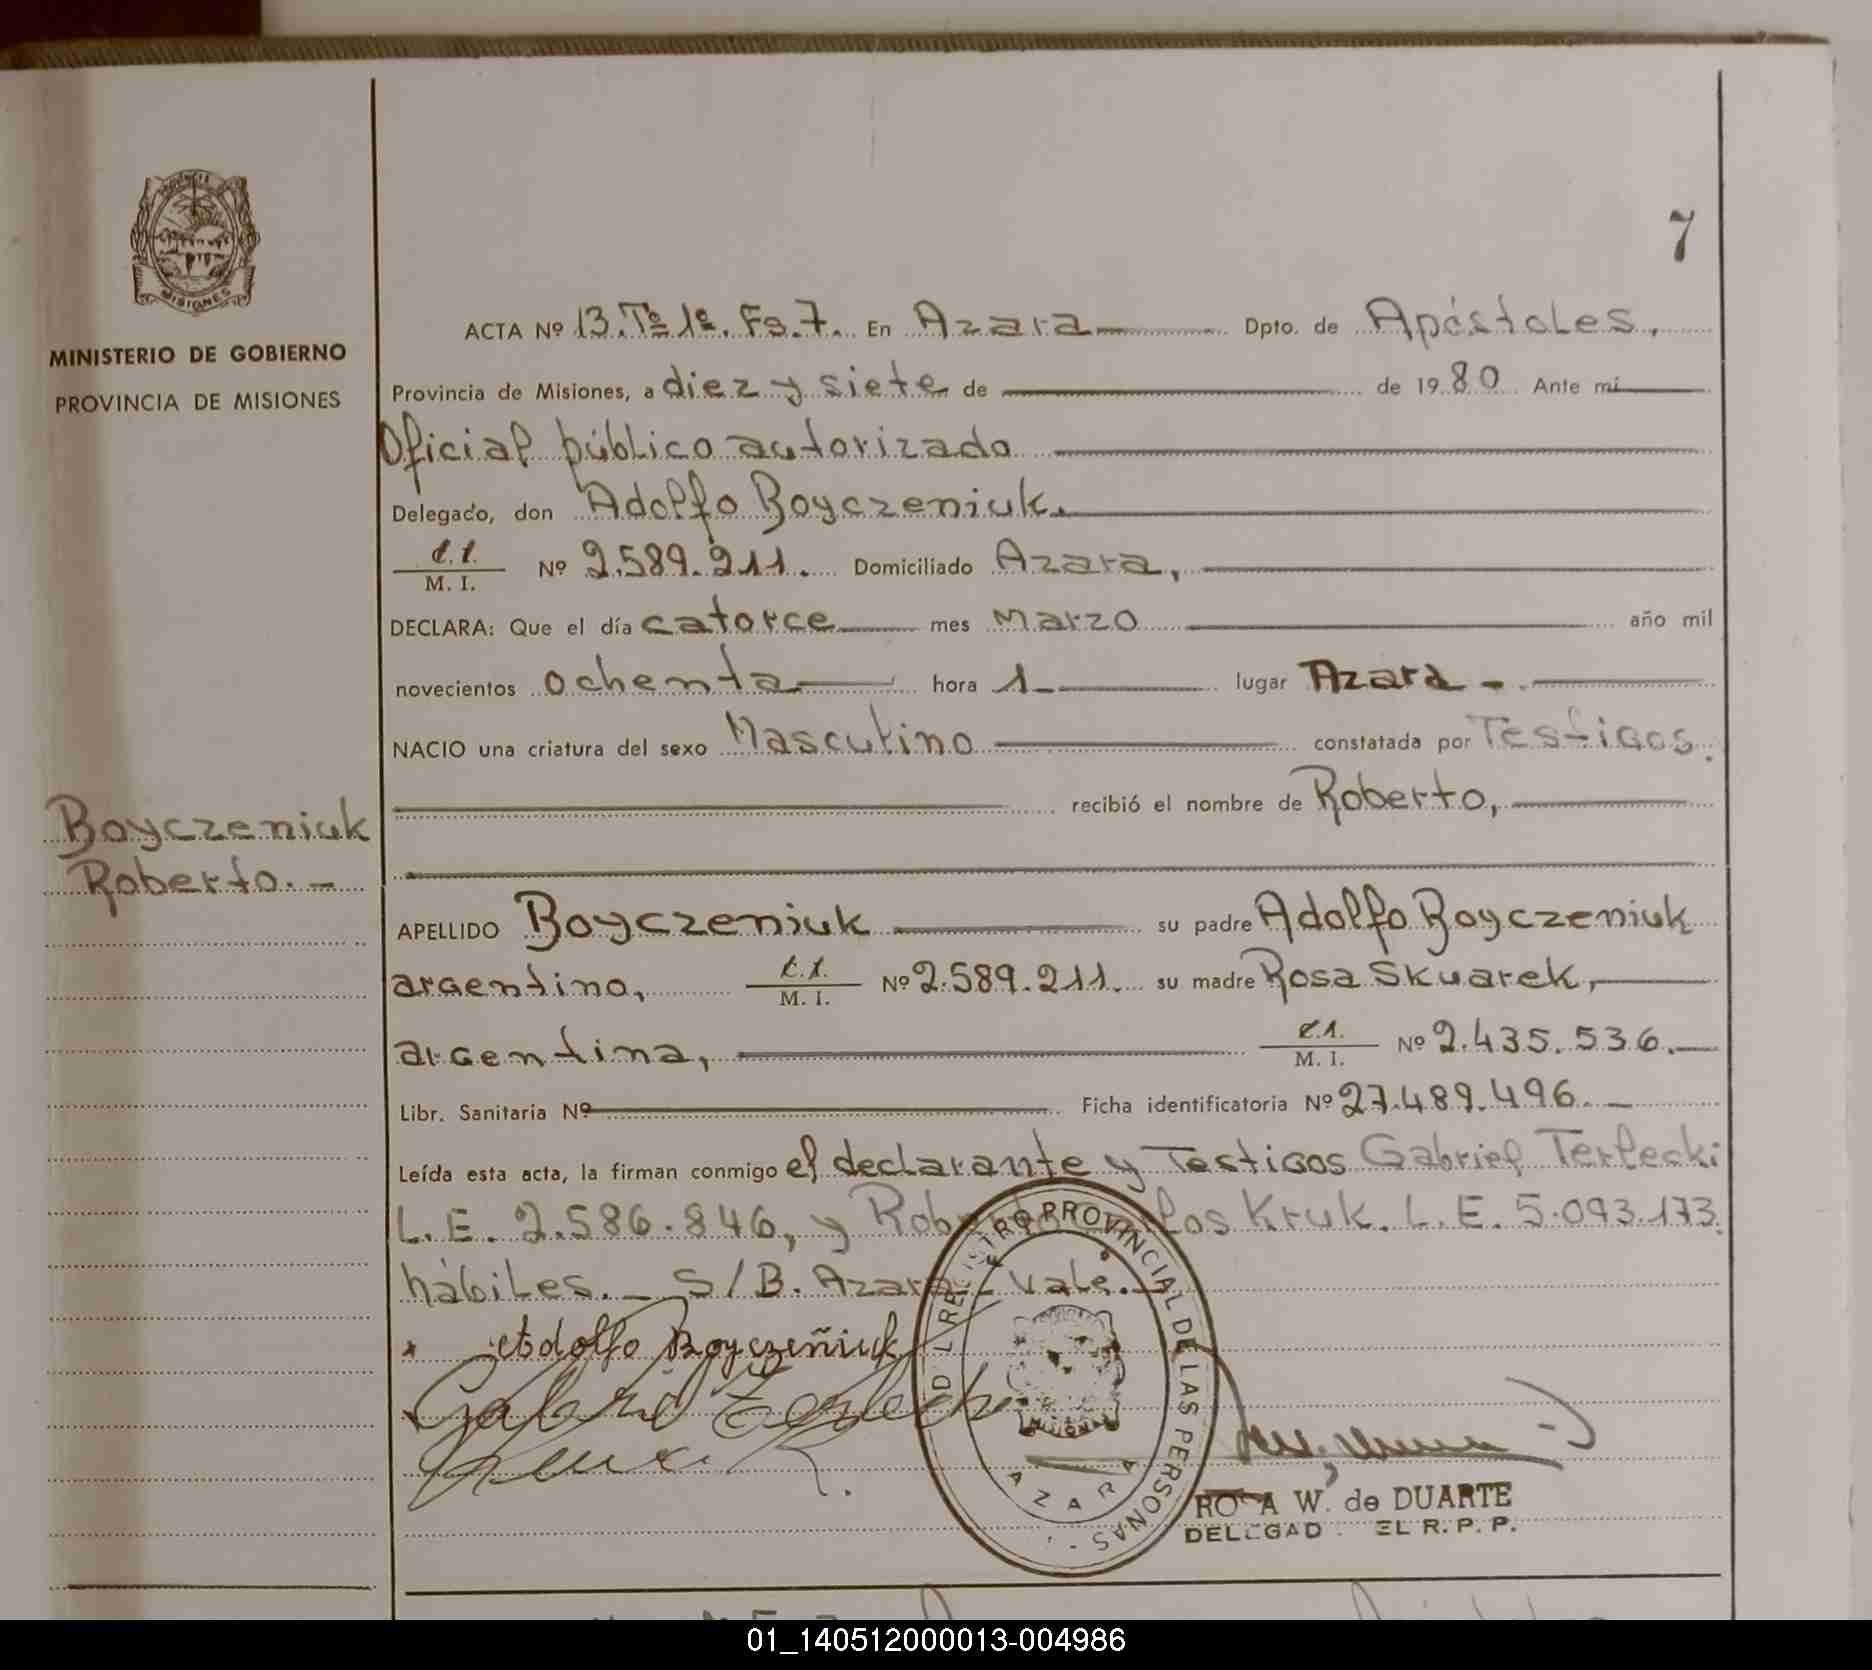 7
PROVINCIA
MISIONES
MINISTERIO DE GOBIERNO
PROVINCIA DE MISIONES
ACTA Nº 13.Tº 1º. Fs. 7. En Azara Dpto. de Apóstoles,
Provincia de Misiones, a diez y siete de de 1980 Ante mí
Oficial público autorizado
Delegado, don Adolfo Boyczeniuk.
C.I.
M. I. Nº 2.589.211. Domiciliado Azara,
DECLARA: Que el día catorce mes Marzo año mil
novecientos ochenta hora 1 lugar Azara -
NACIO una criatura del sexo Masculino constatada por Testigos.
recibió el nombre de Roberto,
Boyczeniuk
Roberto. -
APELLIDO Boyczeniuk su padre Adolfo Boyczeniuk
argentino, C.I. M. I. Nº 2.589.211. su madre Rosa Skuarek,
argentina, C.I. M. I. Nº 2.435.536.
Libr. Sanitaria Nº Ficha identificatoria Nº 27.489.496. -
Leída esta acta, la firman conmigo el declarante y Testigos Gabriel Terlecki
L.E. 2.586.846, y Roberto Carlos Kruk. L.E. 5.093.173.
hábiles. - S/B. Azara - Vale. -
Adolfo Boyczeñiuk
Gabriel Terlecki
Kruk R.
REGISTRO PROVINCIAL DE LAS PERSONAS
MISIONES
AZARA
RO A W. de DUARTE
DELEGAD EL R. P. P.
01_140512000013-004986